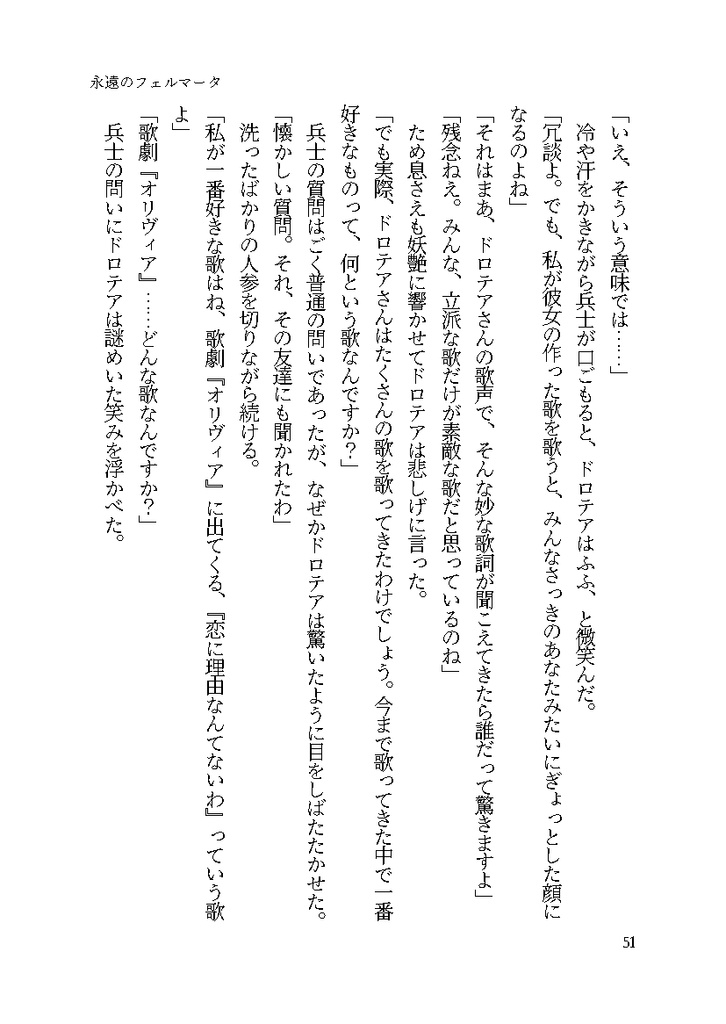 永遠のフェルマータ
「いえ、そういう意味では……」
冷や汗をかきながら兵士が口ごもると、ドロテアはふふ、と微笑んだ。
「冗談よ。でも、私が彼女の作った歌を歌うと、みんなさっきのあなたみたいにぎょっとした顔に
なるのよね」
「それはまあ、ドロテアさんの歌声で、そんな妙な歌詞が聞こえてきたら誰だって驚きますよ」
「残念ねえ。みんな、立派な歌だけが素敵な歌だと思っているのね」
ため息さえも妖艶に響かせてドロテアは悲しげに言った。
「でも実際、ドロテアさんはたくさんの歌を歌ってきたわけでしょう。今まで歌ってきた中で一番
好きなものって、何という歌なんですか？」
兵士の質問はごく普通の問いであったが、なぜかドロテアは驚いたように目をしばたたかせた。
「懐かしい質問。それ、その友達にも聞かれたわ」
洗ったばかりの人参を切りながら続ける。
「私が一番好きな歌はね、歌劇『オリヴィア』に出てくる、『恋に理由なんてないわ』っていう歌
よ」
「歌劇『オリヴィア』……どんな歌なんですか？」
兵士の問いにドロテアは謎めいた笑みを浮かべた。
51